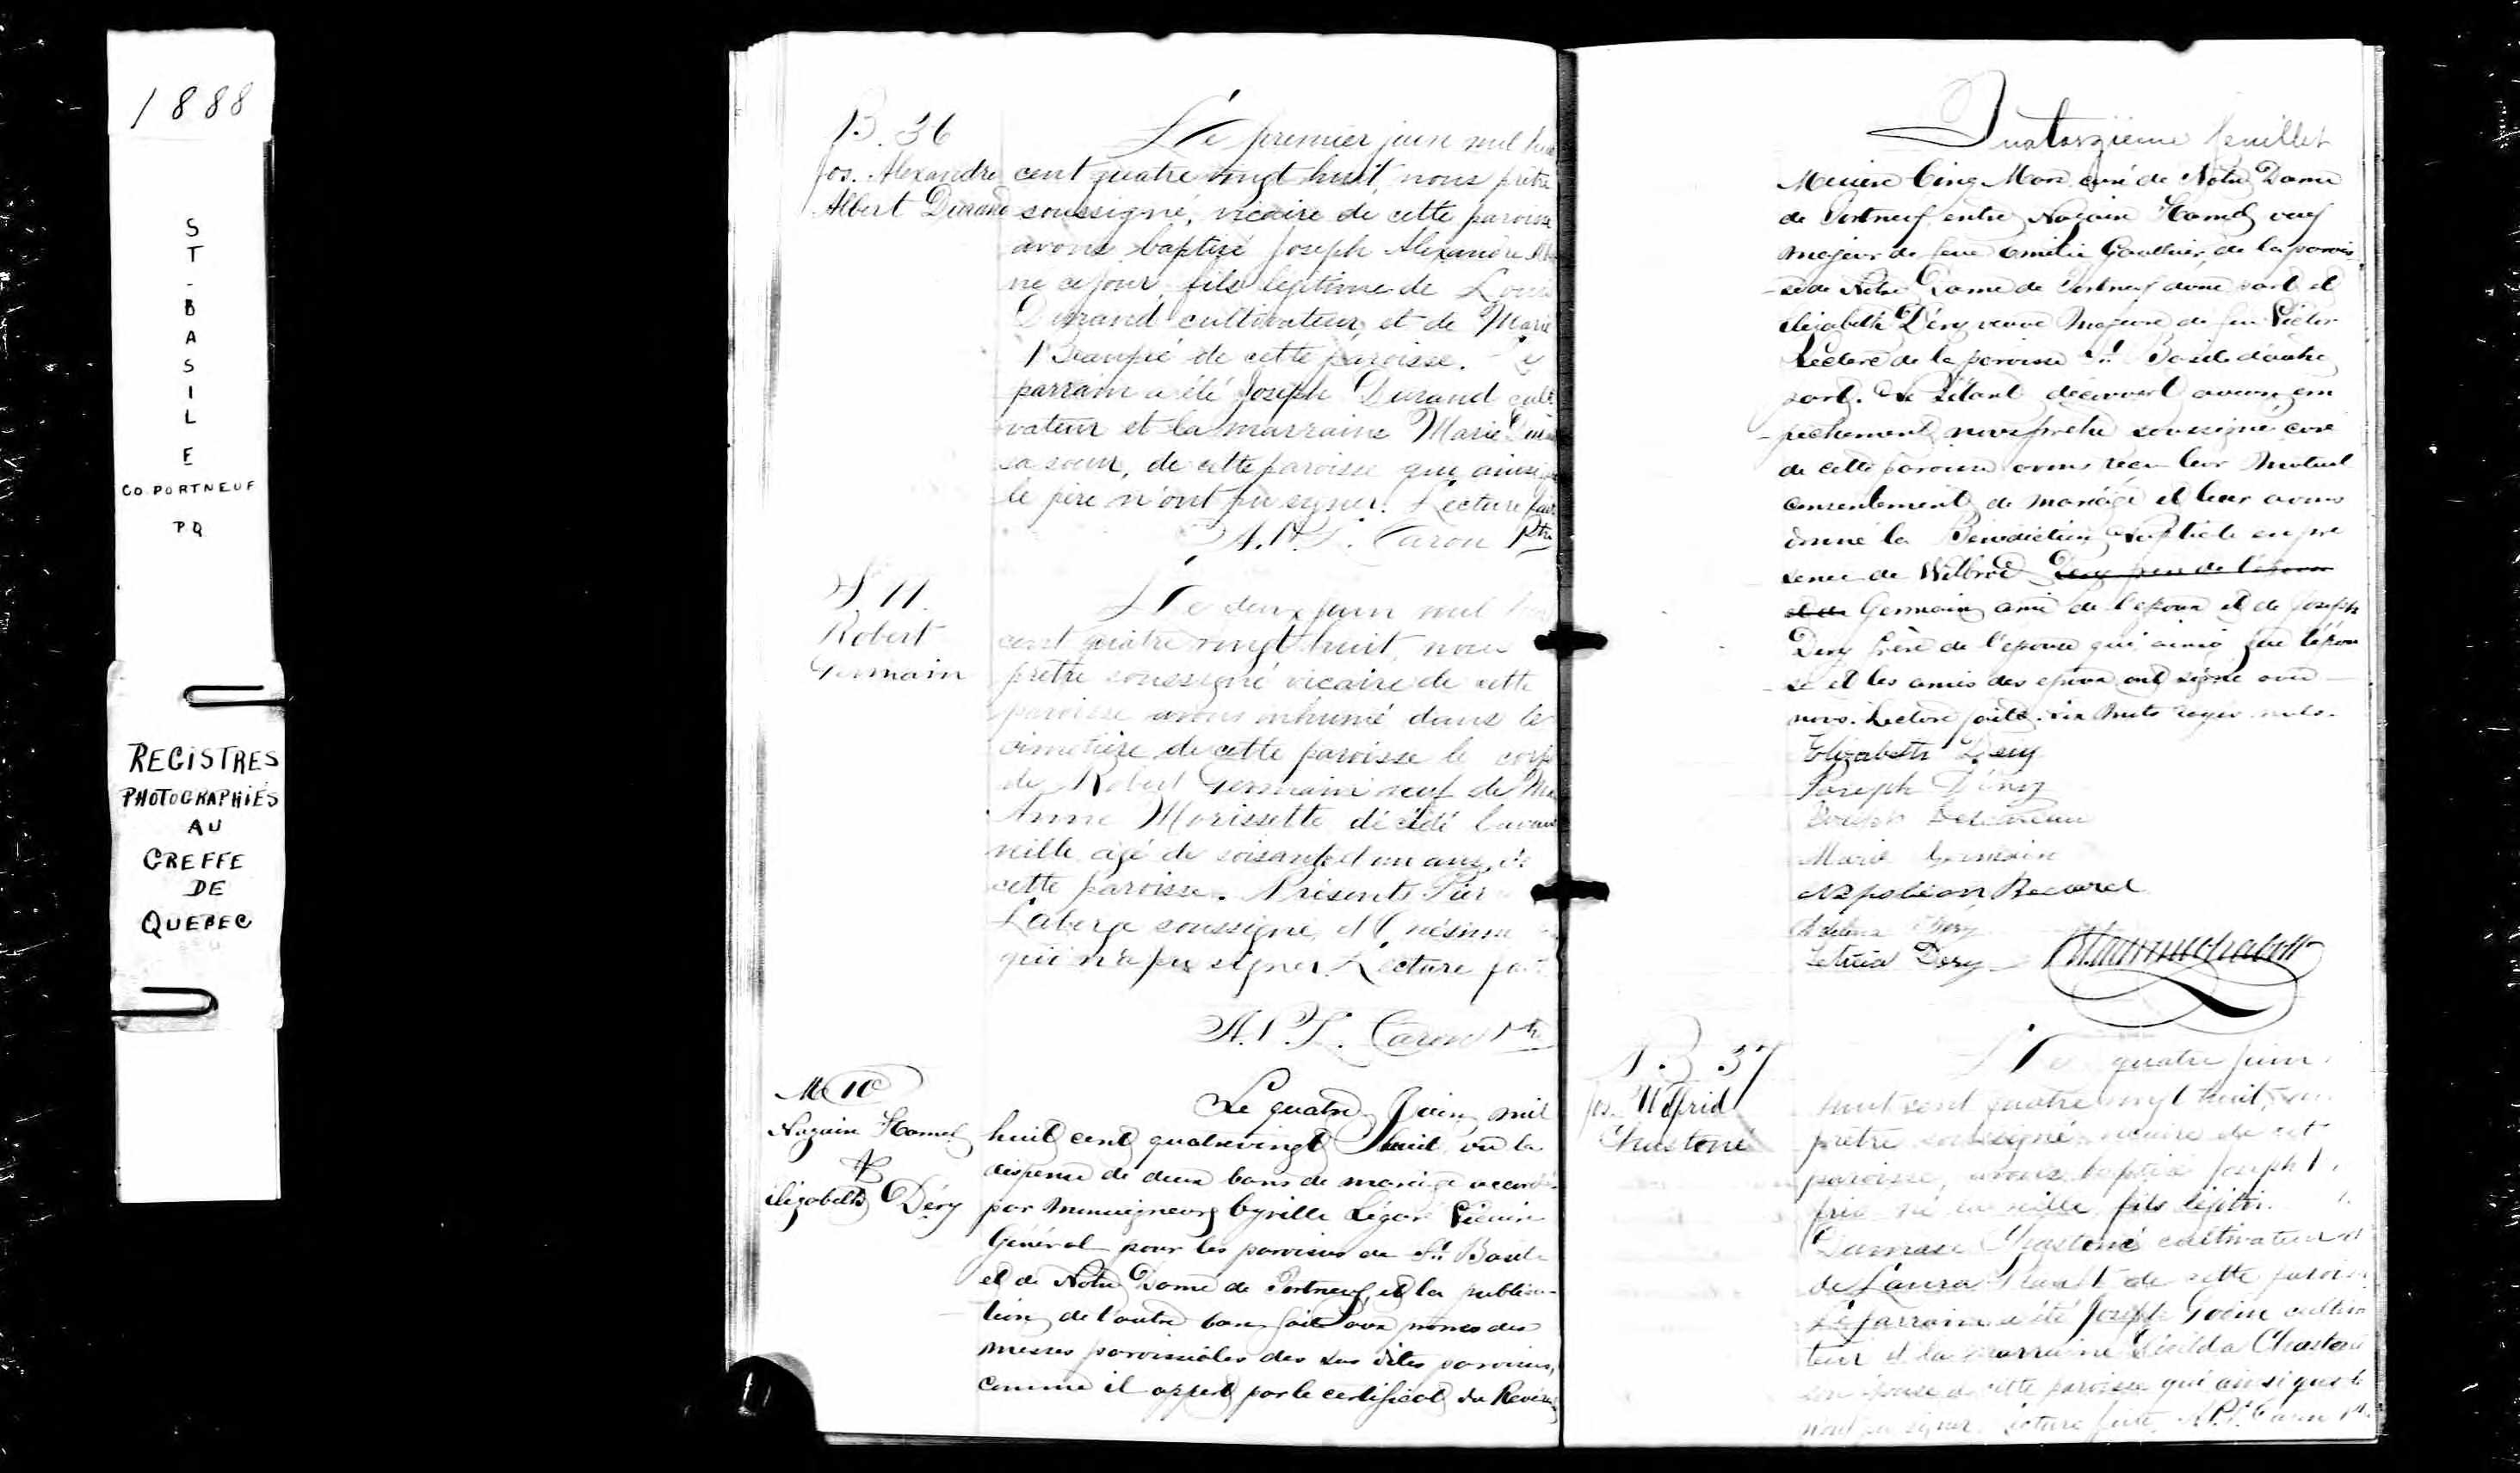 1888
ST-BASILE
CO. PORTNEUF
PQ
REGISTRES
PHOTOGRAPHIÉS
AU
GREFFE
DE
QUEBEC
B. 36
Jos. Alexandre
Albert Durand
Le premier juin mil
cent quatre vingt huit, nous prêtre
soussigné, vicaire de cette paroisse
avons baptisé Joseph Alexandre
né ce jour, fils légitime de Louis
Durand cultivateur et de Marie
de cette paroisse. Le
parrain a été Joseph Durand culti
vateur et la marraine Marie
sa soeur, de cette paroisse qui ainsi
le père n'ont pu signer. Lecture
Caron Ptre
S. 11.
Robert
Germain
Le deux juin mil
cent quatre vingt huit, nous
prêtre soussigné vicaire de cette
paroisse avons inhumé dans le
cimetière de cette paroisse le corps
de Robert Germain veuf de
Anne Morissette décédé l'avant
veille âgé de soixante et un ans, de
cette paroisse. Présents
Laberge soussigné, et
qui n'a pu signer. Lecture
Caron Ptre
M 10
Nazaire Hamel
&
Elizabeth Déry
Le quatre Juin mil
huit cent quatrevingt huit, vu la
dispense de deux bans de mariage accordée
par Monseigneur Cyrille Légaré Vicaire
Général pour les paroisses de St. Basile
et de Notre Dame de Portneuf, et la publica-
tion de l'autre ban fait aux prones des
messes paroissiales des sus dites paroisses,
comme il appert par le certificat du Révérend
Quatorzième feuillet
Messire Cinq Mars curé de Notre Dame
de Portneuf entre Nazaire Hamel veuf
majeur de feue Emélie Gauthier, de la parois-
-se de Notre Dame de Portneuf d'une part et
Elizabeth Déry veuve majeure de feu Victor
Leclerc de la paroisse St. Basile d'autre
part. Ne s'étant découvert aucun em
-pêchement nous prêtre soussigné curé
de cette paroisse avons reçu leur mutuel
consentement de mariage et leur avons
donné la Bénédiction Nuptiale en pré
sence de Wilbrod Dery frère de l'épouse
et de Germain ami de l'époux et de Joseph
Dery frère de l'épouse qui ainsi que l'épou
-se et les amis des époux ont signé avec
nous. Lecture faite. Six mots rayés nuls.
Elizabeth Dery
Joseph Déry
Marie Germain
Napoléon
Déry
Letitia Dery
B 37
Jos. Wilfrid
Chastené
Le quatre juin
huit cent quatre vingt huit,
prêtre soussigné vicaire de cet
paroisse, avons baptisé Joseph
frid né la veille, fils légiti
Damase Chastené cultivateur et
de Laura de cette paroisse
Le parrain a été Joseph Godin cultiva
teur et la marraine Chastené
son épouse de cette paroisse qui ainsi que le
n'ont pu signer. Lecture faite. Caron Ptre